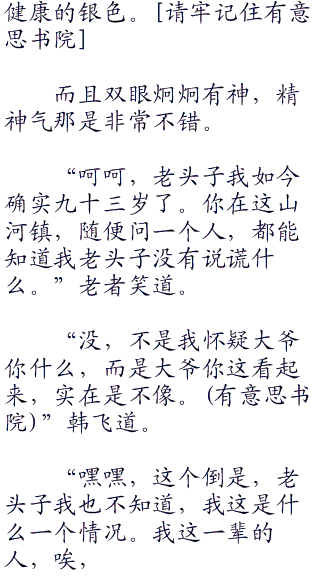 健康的银色。[请牢记住有意
思书院]
而且双眼炯炯有神，精
神气那是非常不错。
“呵呵，老头子我如今
确实九十三岁了。你在这山
河镇，随便问一个人，都能
知道我老头子没有说谎什
么。”老者笑道。
“没，不是我怀疑大爷
你什么，而是大爷你这看起
来，实在是不像。(有意思书
院)”韩飞道。
“嘿嘿，这个倒是，老
头子我也不知道，我这是什
么一个情况。我这一辈的
人，唉，